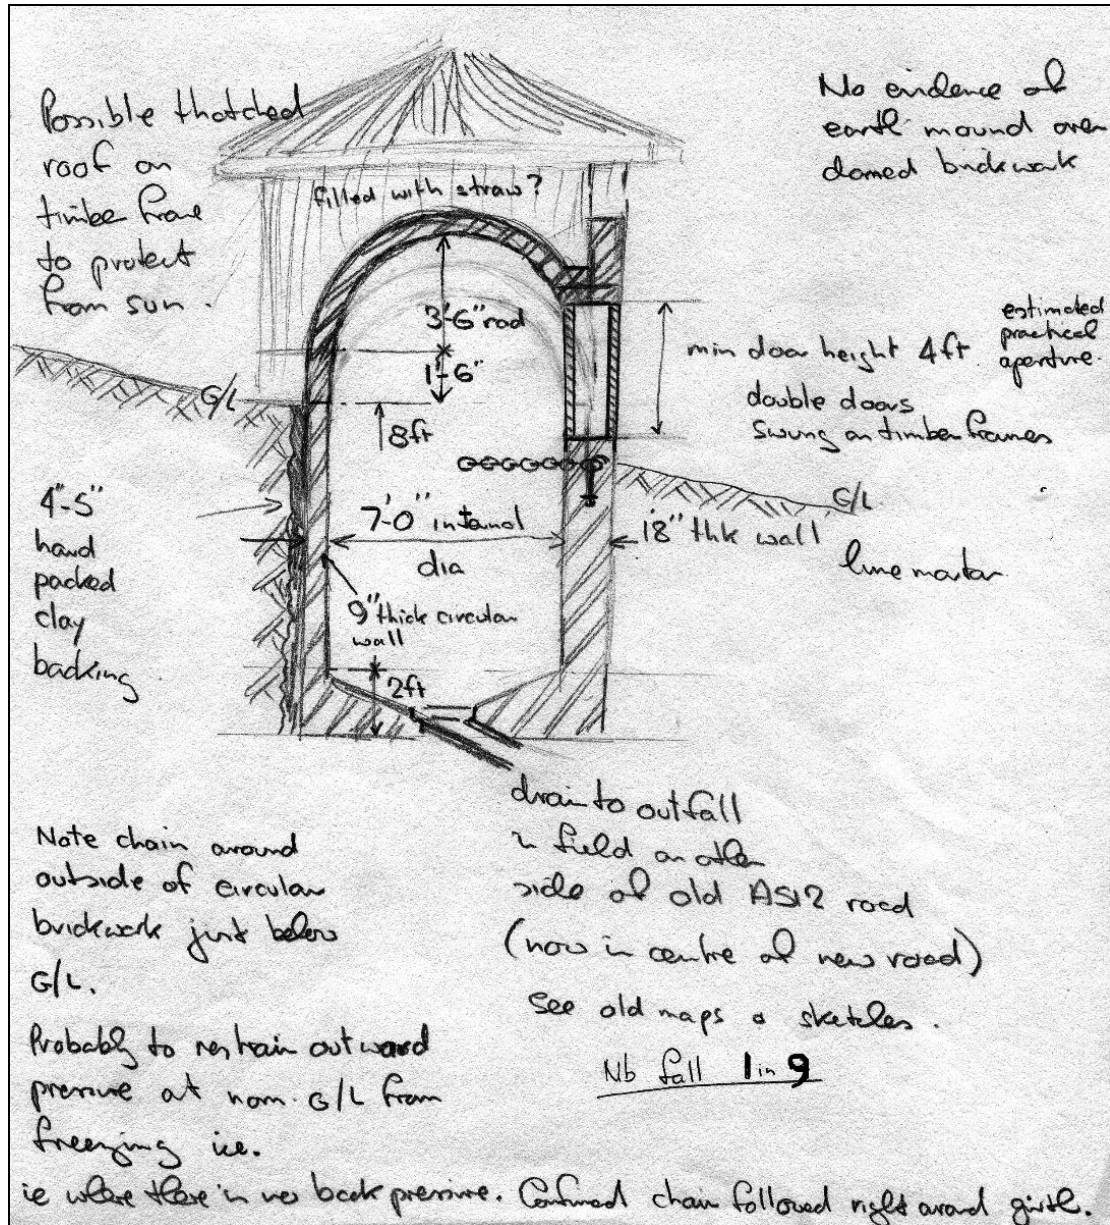 Possible thatched
roof on
timber frame
to protect
from sun.
No evidence of
earth mound over
domed brickwork
filled with straw?
3'-6" rad
1'-6"
G/L
8ft
min door height 4ft
estimated
practical
aperture.
double doors
swung on timber frames
G/L
4"-5"
hand
packed
clay
backing
7'-0" internal
dia
18" thk wall
lime mortar
9" thick circular
wall
2ft
drain to outfall
in field on other
side of old A512 road
(now in centre of new road)
See old maps & sketches.
Nb fall 1 in 9
Note chain around
outside of circular
brickwork just below
G/L.
Probably to restrain outward
pressure at nom. G/L from
freezing ice.
ie where there is no back pressure. Confirmed chain followed right around girth.